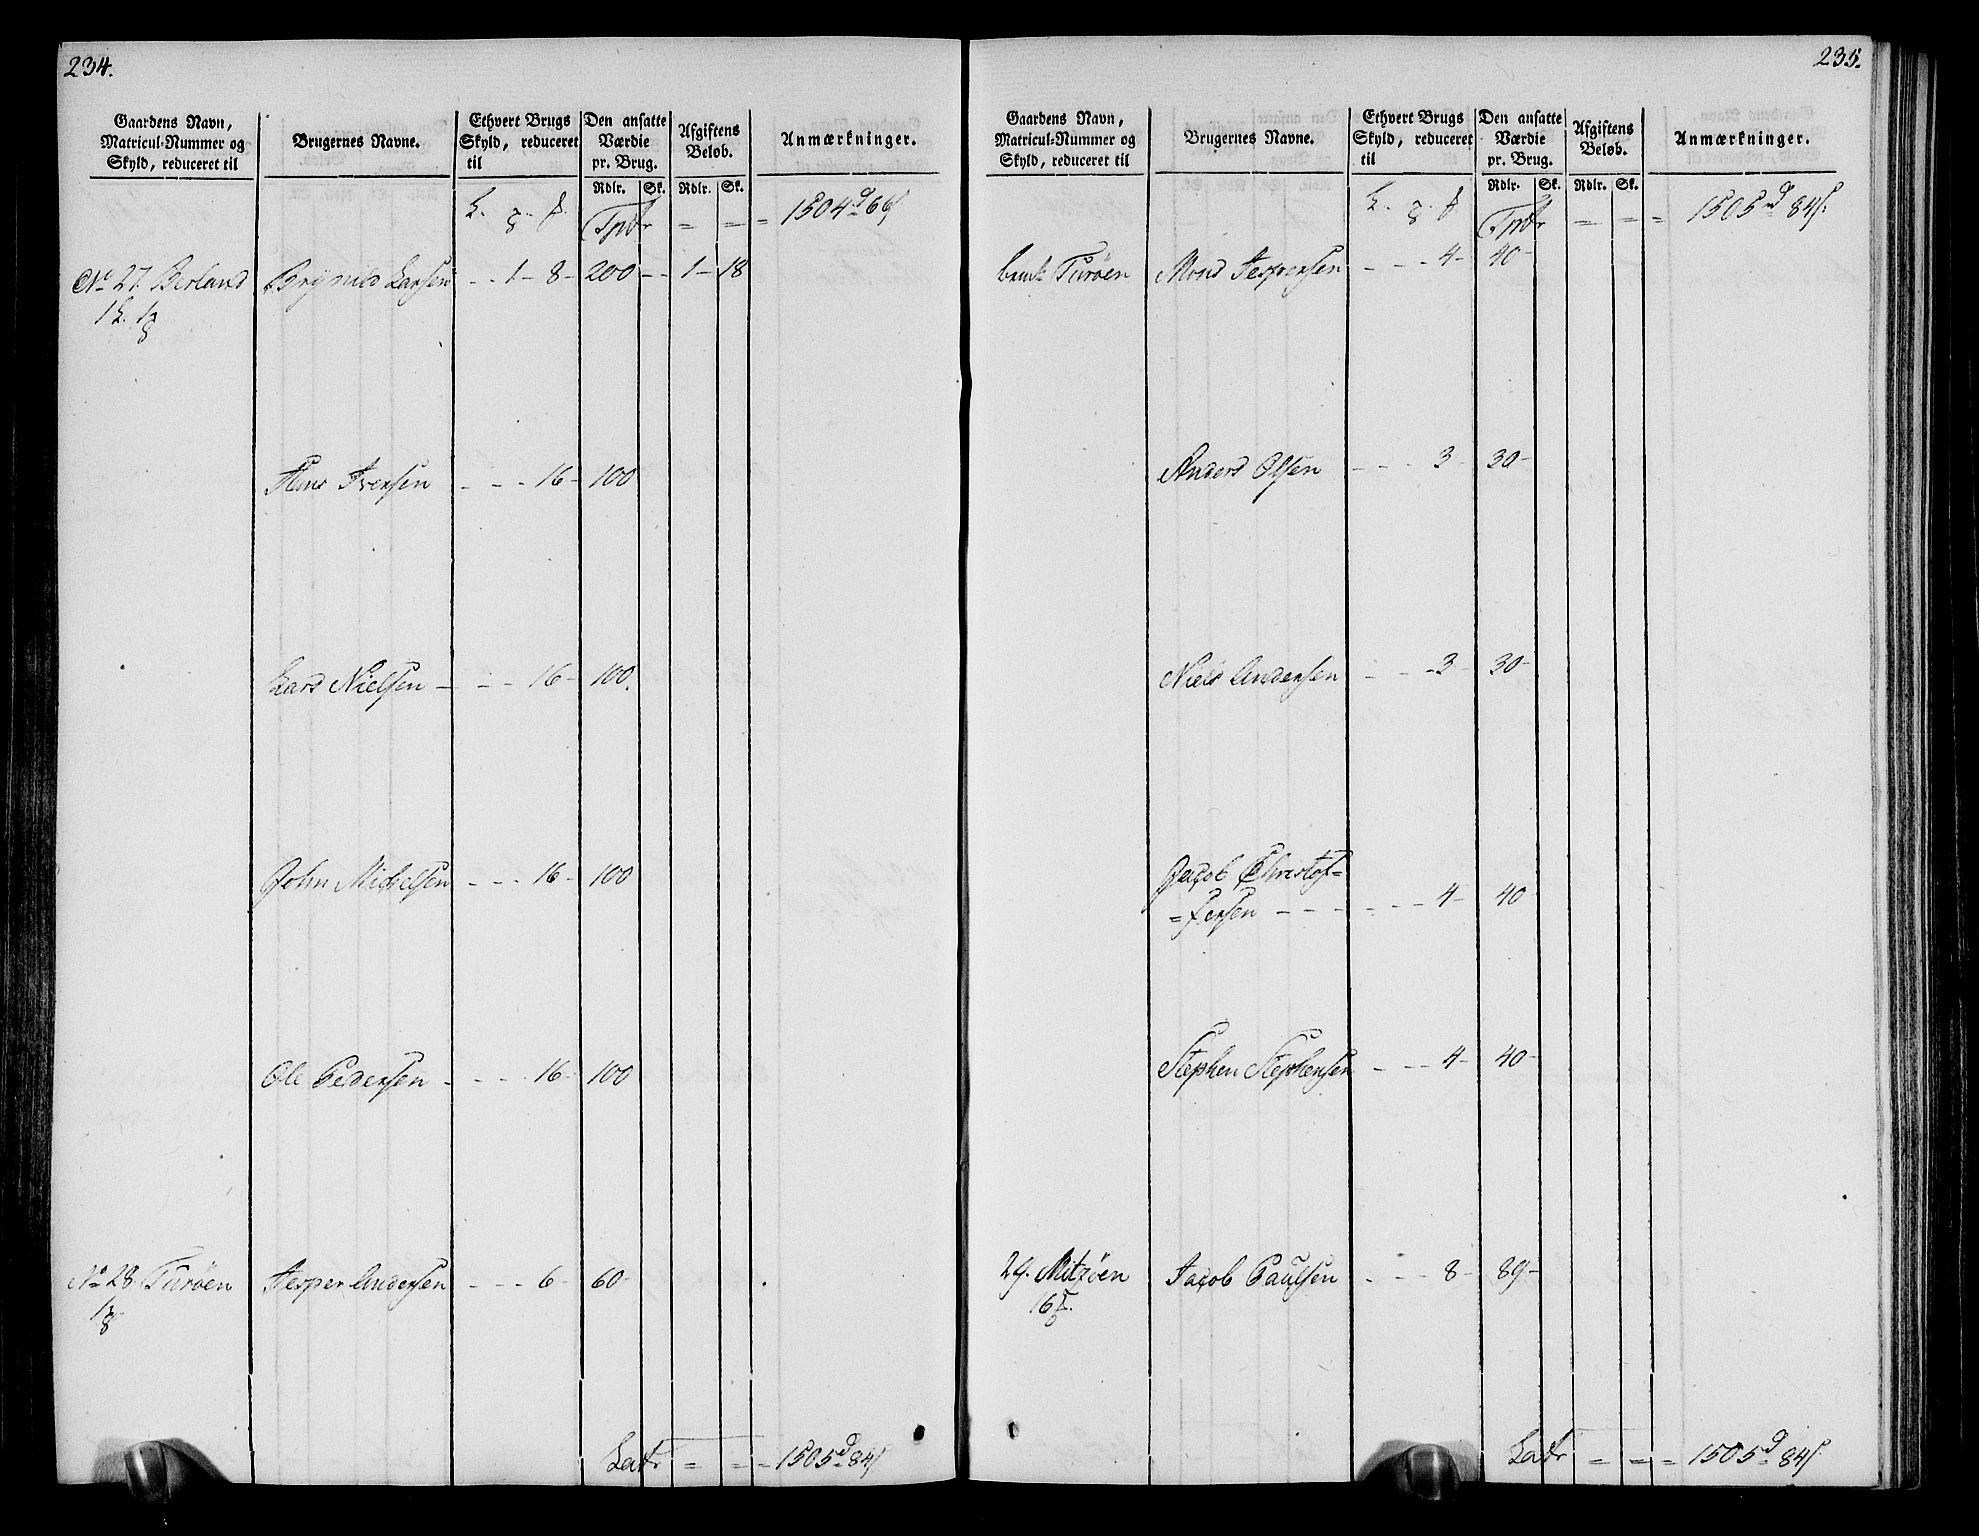 234.
Gaardens Navn,
Matricul-Nummer og
Skyld, reduceret til
Brugernes Navne.
Ethvert Brugs
Skyld, reduceret
til
Den ansatte
Værdie
pr. Brug.
Afgiftens
Beløb.
Anmærkninger.
Rdlr. Sk. Rdlr. Sk.
Tptr = = = 1504 d 66 s
No 27 Berland Brynild Larsen - - 1 - 8 - 200 - - 1 - 18
Hans Iversen - - - 16 - 100
Lars Nielsen - - - - 16 - 100.
John Michelsen - - - 16 - 100
Ole Pedersen - - - - 16 - 100
No 28 Turöen Jesper Andersen - - - 6 - 60 -
Latr = = = 1505 d 84 s
235.
Gaardens Navn,
Matricul-Nummer og
Skyld, reduceret til
Brugernes Navne.
Ethvert Brugs
Skyld, reduceret
til
Den ansatte
Værdie
pr. Brug.
Afgiftens
Beløb.
Anmærkninger.
Rdlr. Sk. Rdlr. Sk.
Tptr = = = 1505 d 84 s.
Turöen Mons Jespersen - - - 4 - 40 -
Anders Olsen - - - 3 - 30 -
Niels Andersen - - - 3 - 30 -
Jacob Christof=
=fersen - - - - - - - 4 - 40
Stephen Stephensen - - - 4 - 40 -
29. Mitzöen Jacob Paulsen - - - 8 - 89 -
Latr = = = 1505 d 84 s